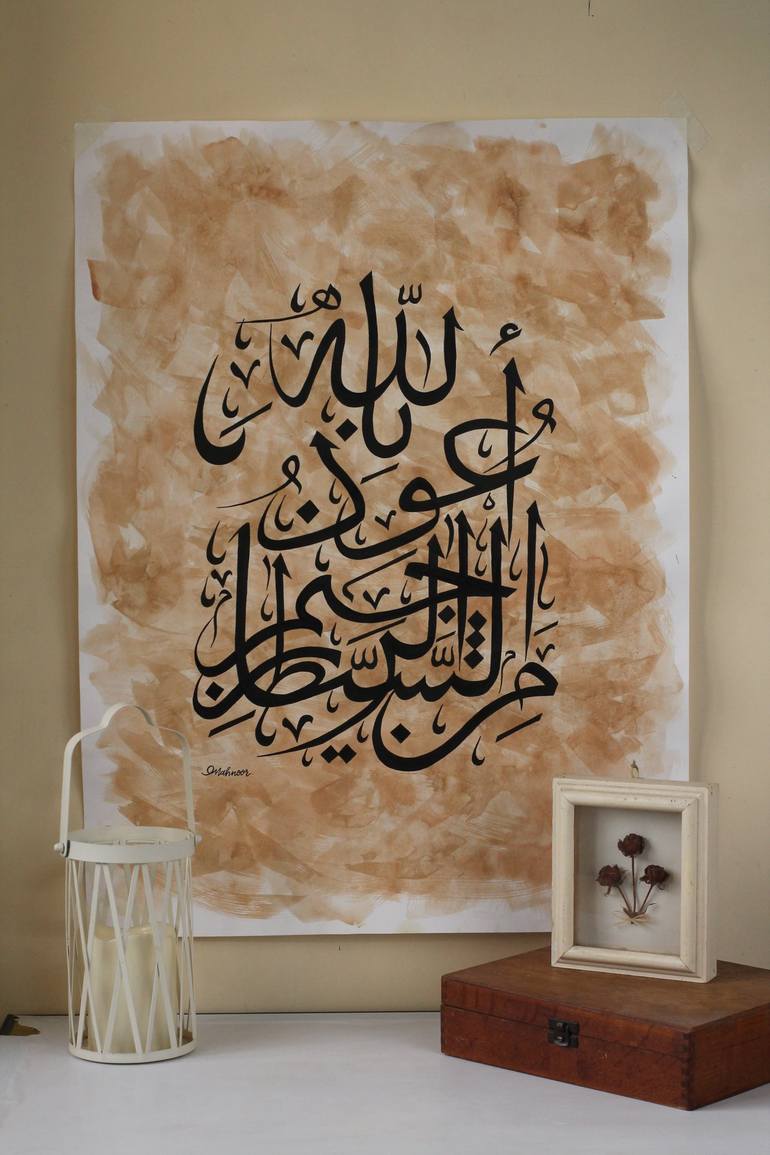 أعوذ بالله
من الشيطان الرجيم
Mahnoor